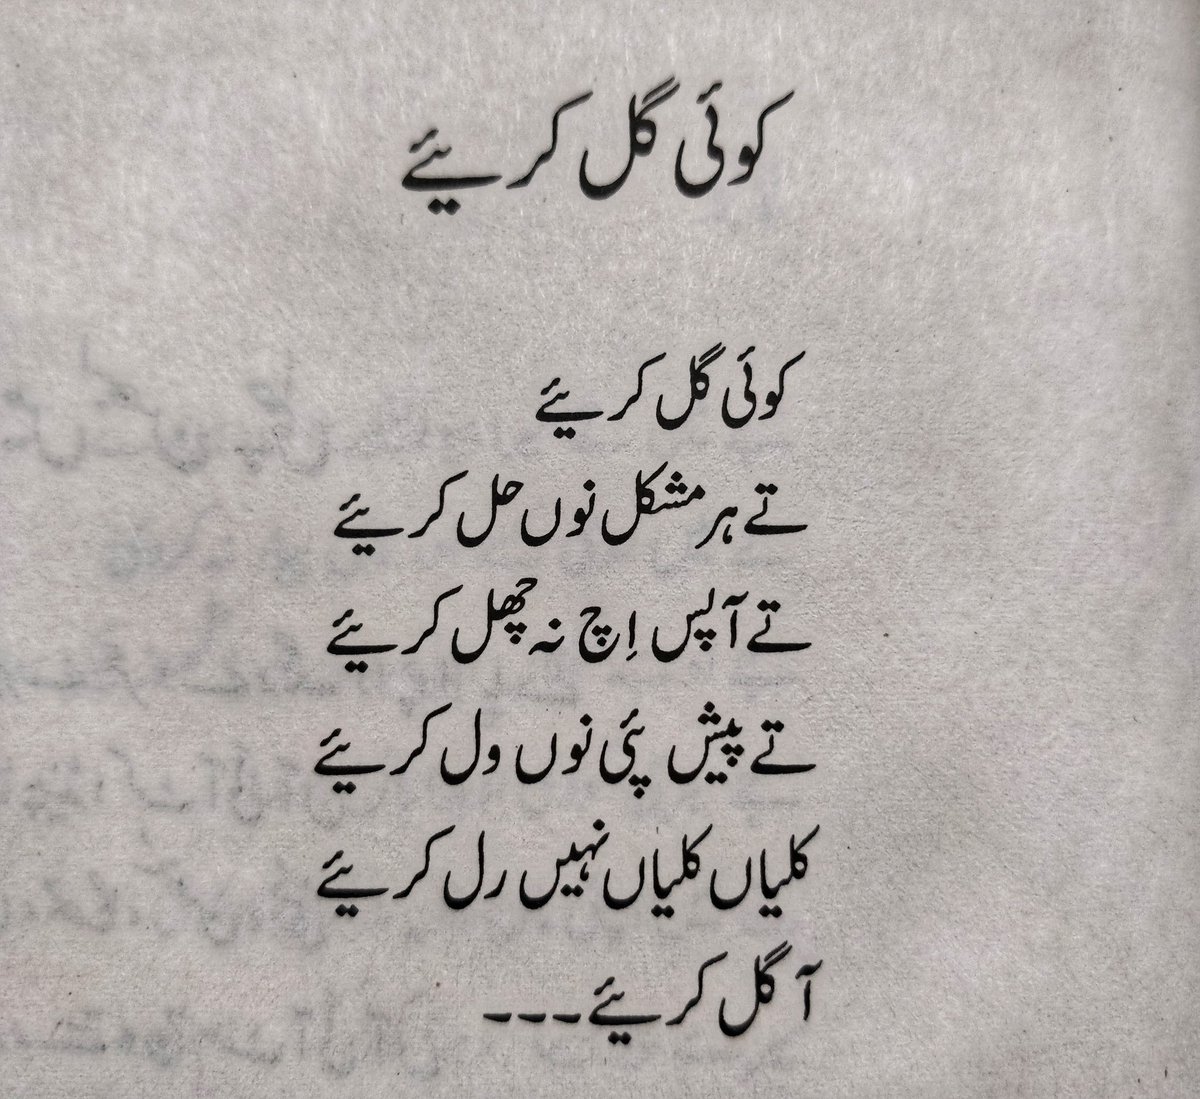 کوئی گل کریئے
کوئی گل کریئے
تے ہر مشکل نوں حل کریئے
تے آپس اِچ نہ چھل کریئے
تے پیش پئی نوں ول کریئے
کلیاں کلیاں نہیں رل کریئے
آ گل کریئے۔۔۔